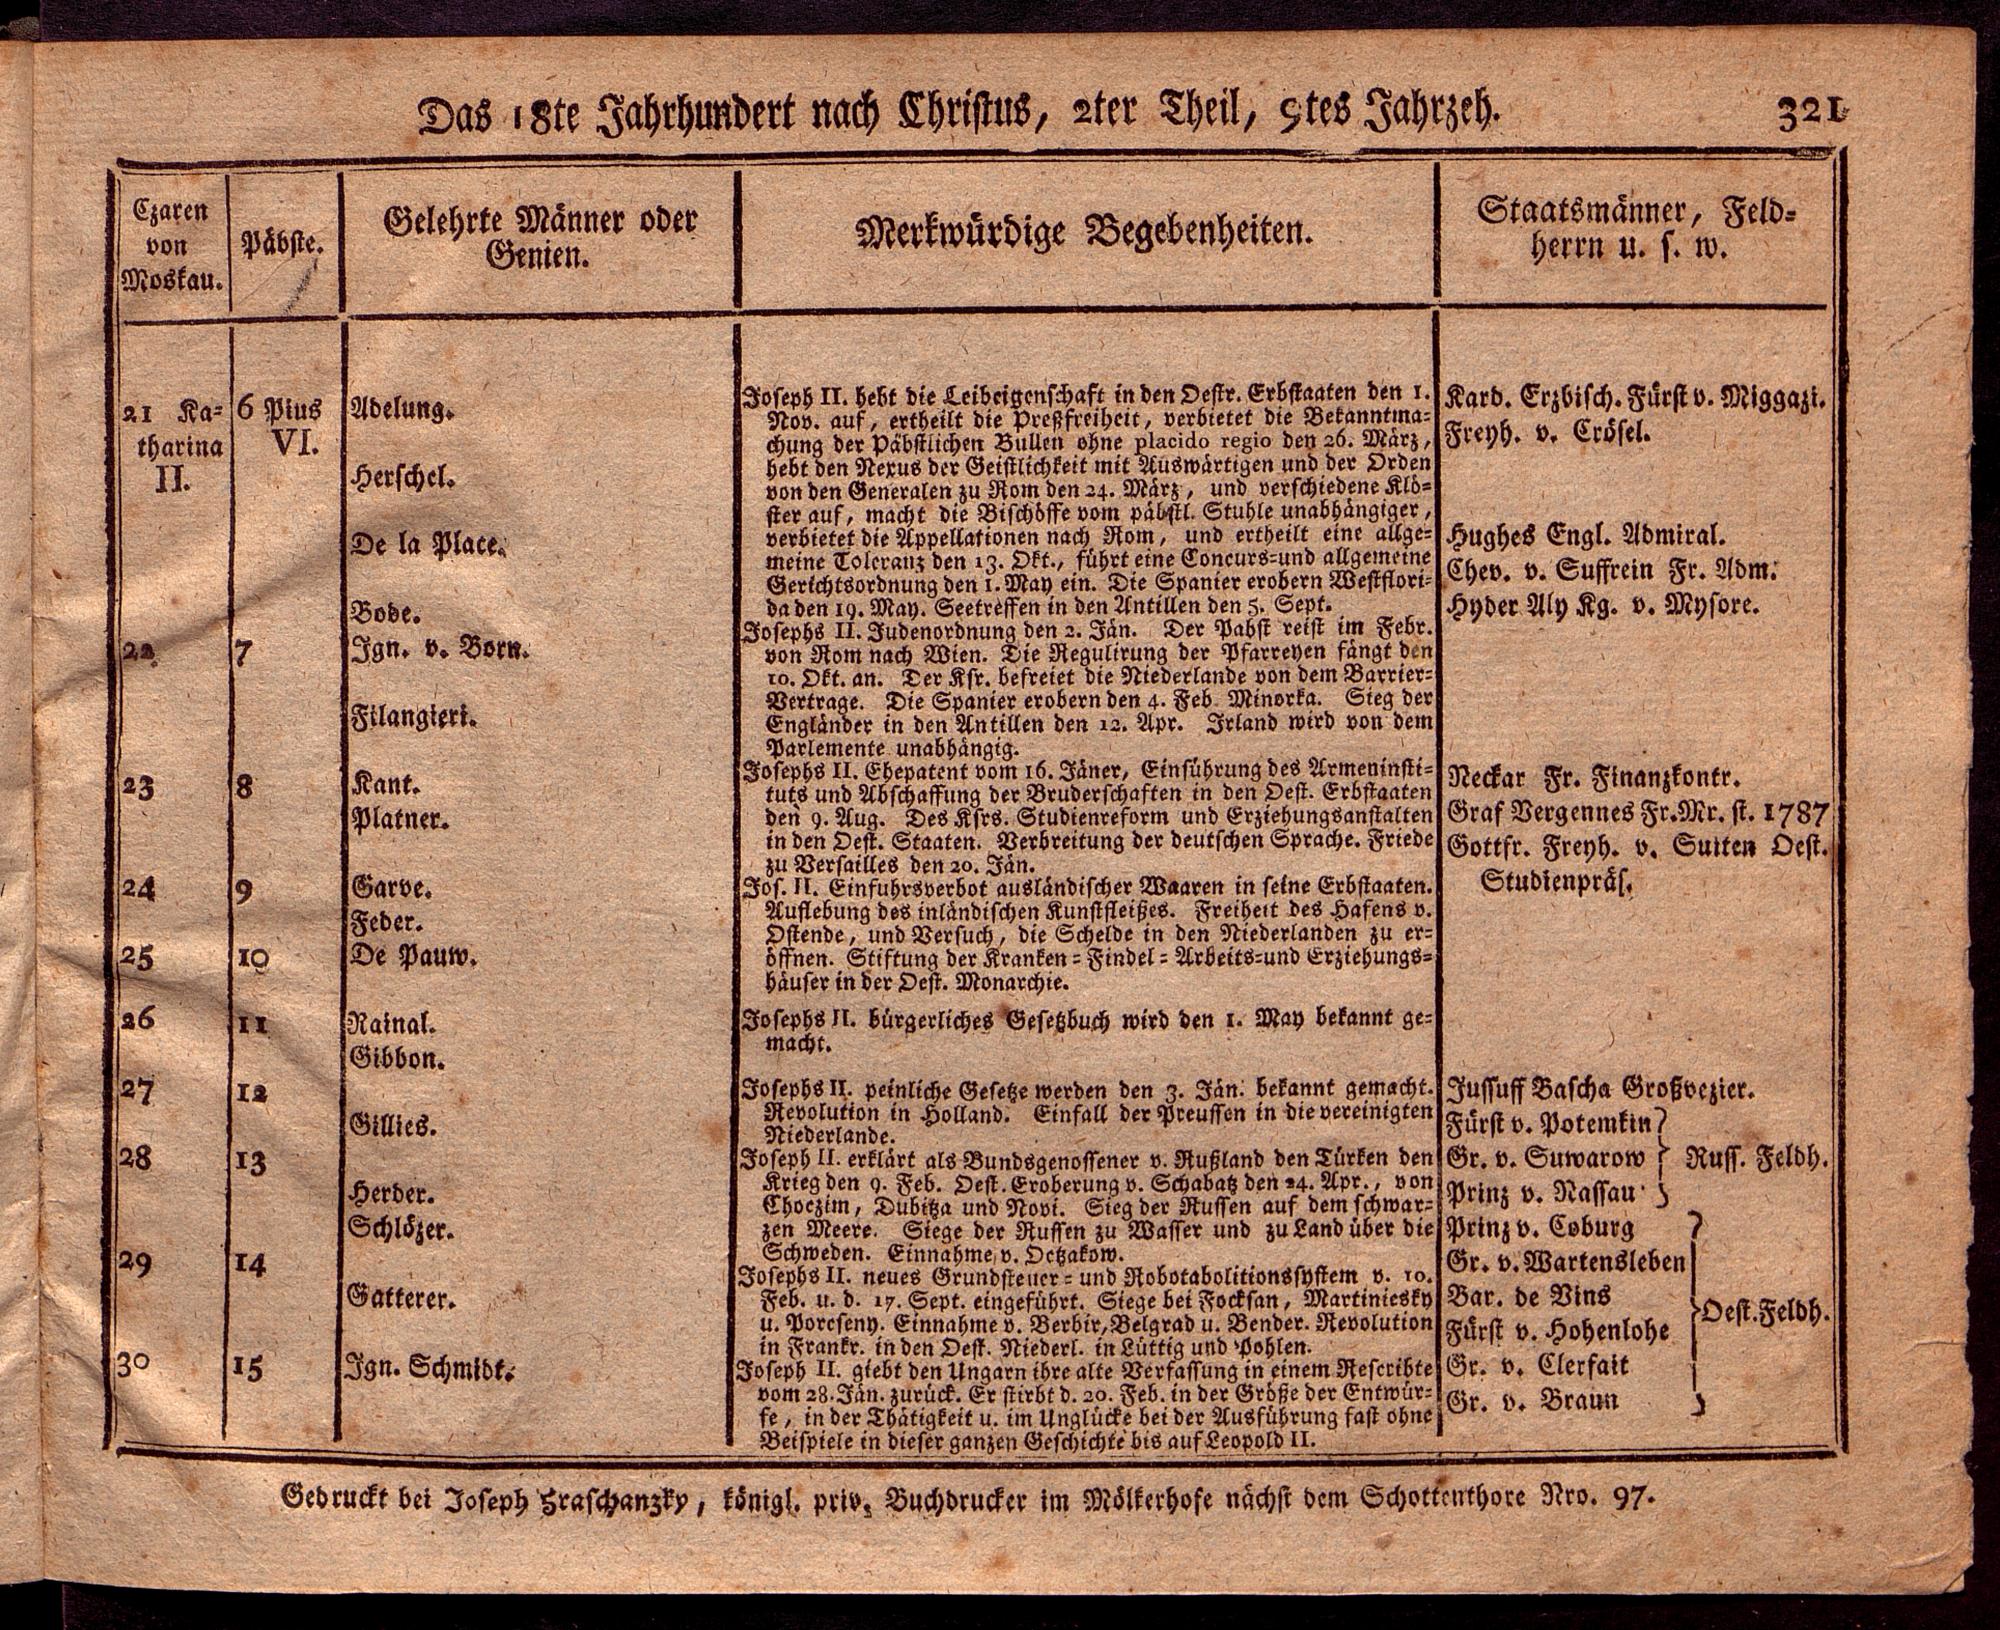 Das 18te Jahrhundert nach Christus, 2ter Theil, 9tes Jahrzeh.
321
Czaren
von
Moskau.
Päbste.
Gelehrte Männer oder
Genien.
Merkwürdige Begebenheiten.
Staatsmänner, Feld-
herrn u. s. w.
21 Ka-
tharina
II.
22
23
24
25
26
27
28
29
30
6 Pius
VI.
7
8
9
10
11
12
13
14
15
Adelung.
Herschel.
De la Place.
Bode.
Ign. v. Born.
Filangieri.
Kant.
Platner.
Garve.
Feder.
De Pauw.
Rainal.
Gibbon.
Gillies.
Herder.
Schlözer.
Gatterer.
Ign. Schmidt.
Joseph II. hebt die Leibeigenschaft in den Oestr. Erbstaaten den 1.
Nov. auf, ertheilt die Preßfreiheit, verbietet die Bekanntma-
chung der Päbstlichen Bullen ohne placido regio den 26. März,
hebt den Nexus der Geistlichkeit mit Auswärtigen und der Orden
von den Generalen zu Rom den 24. März, und verschiedene Klö-
ster auf, macht die Bischöffe vom päbstl. Stuhle unabhängiger,
verbietet die Appellationen nach Rom, und ertheilt eine allge-
meine Toleranz den 13. Okt., führt eine Concurs-und allgemeine
Gerichtsordnung den 1. May ein. Die Spanier erobern Westflori-
da den 19. May. Seetreffen in den Antillen den 5. Sept.
Josephs II. Judenordnung den 2. Jän. Der Pabst reist im Febr.
von Rom nach Wien. Die Regulirung der Pfarreyen fängt den
10. Okt. an. Der Ksr. befreiet die Niederlande von dem Barrier-
Vertrage. Die Spanier erobern den 4. Feb. Minorka. Sieg der
Engländer in den Antillen den 12. Apr. Irland wird von dem
Parlemente unabhängig.
Josephs II. Ehepatent vom 16. Jäner, Einführung des Armeninsti-
tuts und Abschaffung der Bruderschaften in den Oest. Erbstaaten
den 9. Aug. Des Ksrs. Studienreform und Erziehungsanstalten
in den Oest. Staaten. Verbreitung der deutschen Sprache. Friede
zu Versailles den 20. Jän.
Jos. II. Einfuhrsverbot ausländischer Waaren in seine Erbstaaten.
Auflebung des inländischen Kunstfleißes. Freiheit des Hafens v.
Ostende, und Versuch, die Schelde in den Niederlanden zu er-
öffnen. Stiftung der Kranken-Findel-Arbeits-und Erziehungs-
häuser in der Oest. Monarchie.
Josephs II. bürgerliches Gesetzbuch wird den 1. May bekannt ge-
macht.
Josephs II. peinliche Gesetze werden den 3. Jän. bekannt gemacht.
Revolution in Holland. Einfall der Preussen in die vereinigten
Niederlande.
Joseph II. erklärt als Bundsgenossener v. Rußland den Türken den
Krieg den 9. Feb. Oest. Eroberung v. Schabatz den 24. Apr., von
Choczim, Dubitza und Novi. Sieg der Russen auf dem schwar-
zen Meere. Siege der Russen zu Wasser und zu Land über die
Schweden. Einnahme v. Oczakow.
Josephs II. neues Grundsteuer-und Robotabolitionssystem v. 10.
Feb. u. d. 17. Sept. eingeführt. Siege bei Focksan, Martiniesky
u. Porcseny. Einnahme v. Berbir, Belgrad u. Bender. Revolution
in Frankr. in den Oest. Niederl. in Lüttig und Pohlen.
Joseph II. giebt den Ungarn ihre alte Verfassung in einem Rescribte
vom 28. Jän. zurück. Er stirbt d. 20. Feb. in der Größe der Entwür-
fe, in der Thätigkeit u. im Unglücke bei der Ausführung fast ohne
Beispiele in dieser ganzen Geschichte bis auf Leopold II.
Kard. Erzbisch. Fürst v. Miggazi.
Freyh. v. Crösel.
Hughes Engl. Admiral.
Chev. v. Suffrein Fr. Adm.
Hyder Aly Kg. v. Mysore.
Neckar Fr. Finanzkontr.
Graf Vergennes Fr. Mr. st. 1787
Gottfr. Freyh. v. Suiten Oest.
Studienpräs.
Jussuff Bascha Großvezier.
Fürst v. Potemkin
Gr. v. Suwarow Russ. Feldh.
Prinz v. Nassau
Prinz v. Coburg
Gr. v. Wartensleben
Bar. de Vins
Oest. Feldh.
Fürst v. Hohenlohe
Gr. v. Clerfait
Gr. v. Braun
Gedruckt bei Joseph Hraschanzky, königl. priv. Buchdrucker im Mölkerhofe nächst dem Schottenthore Nro. 97.